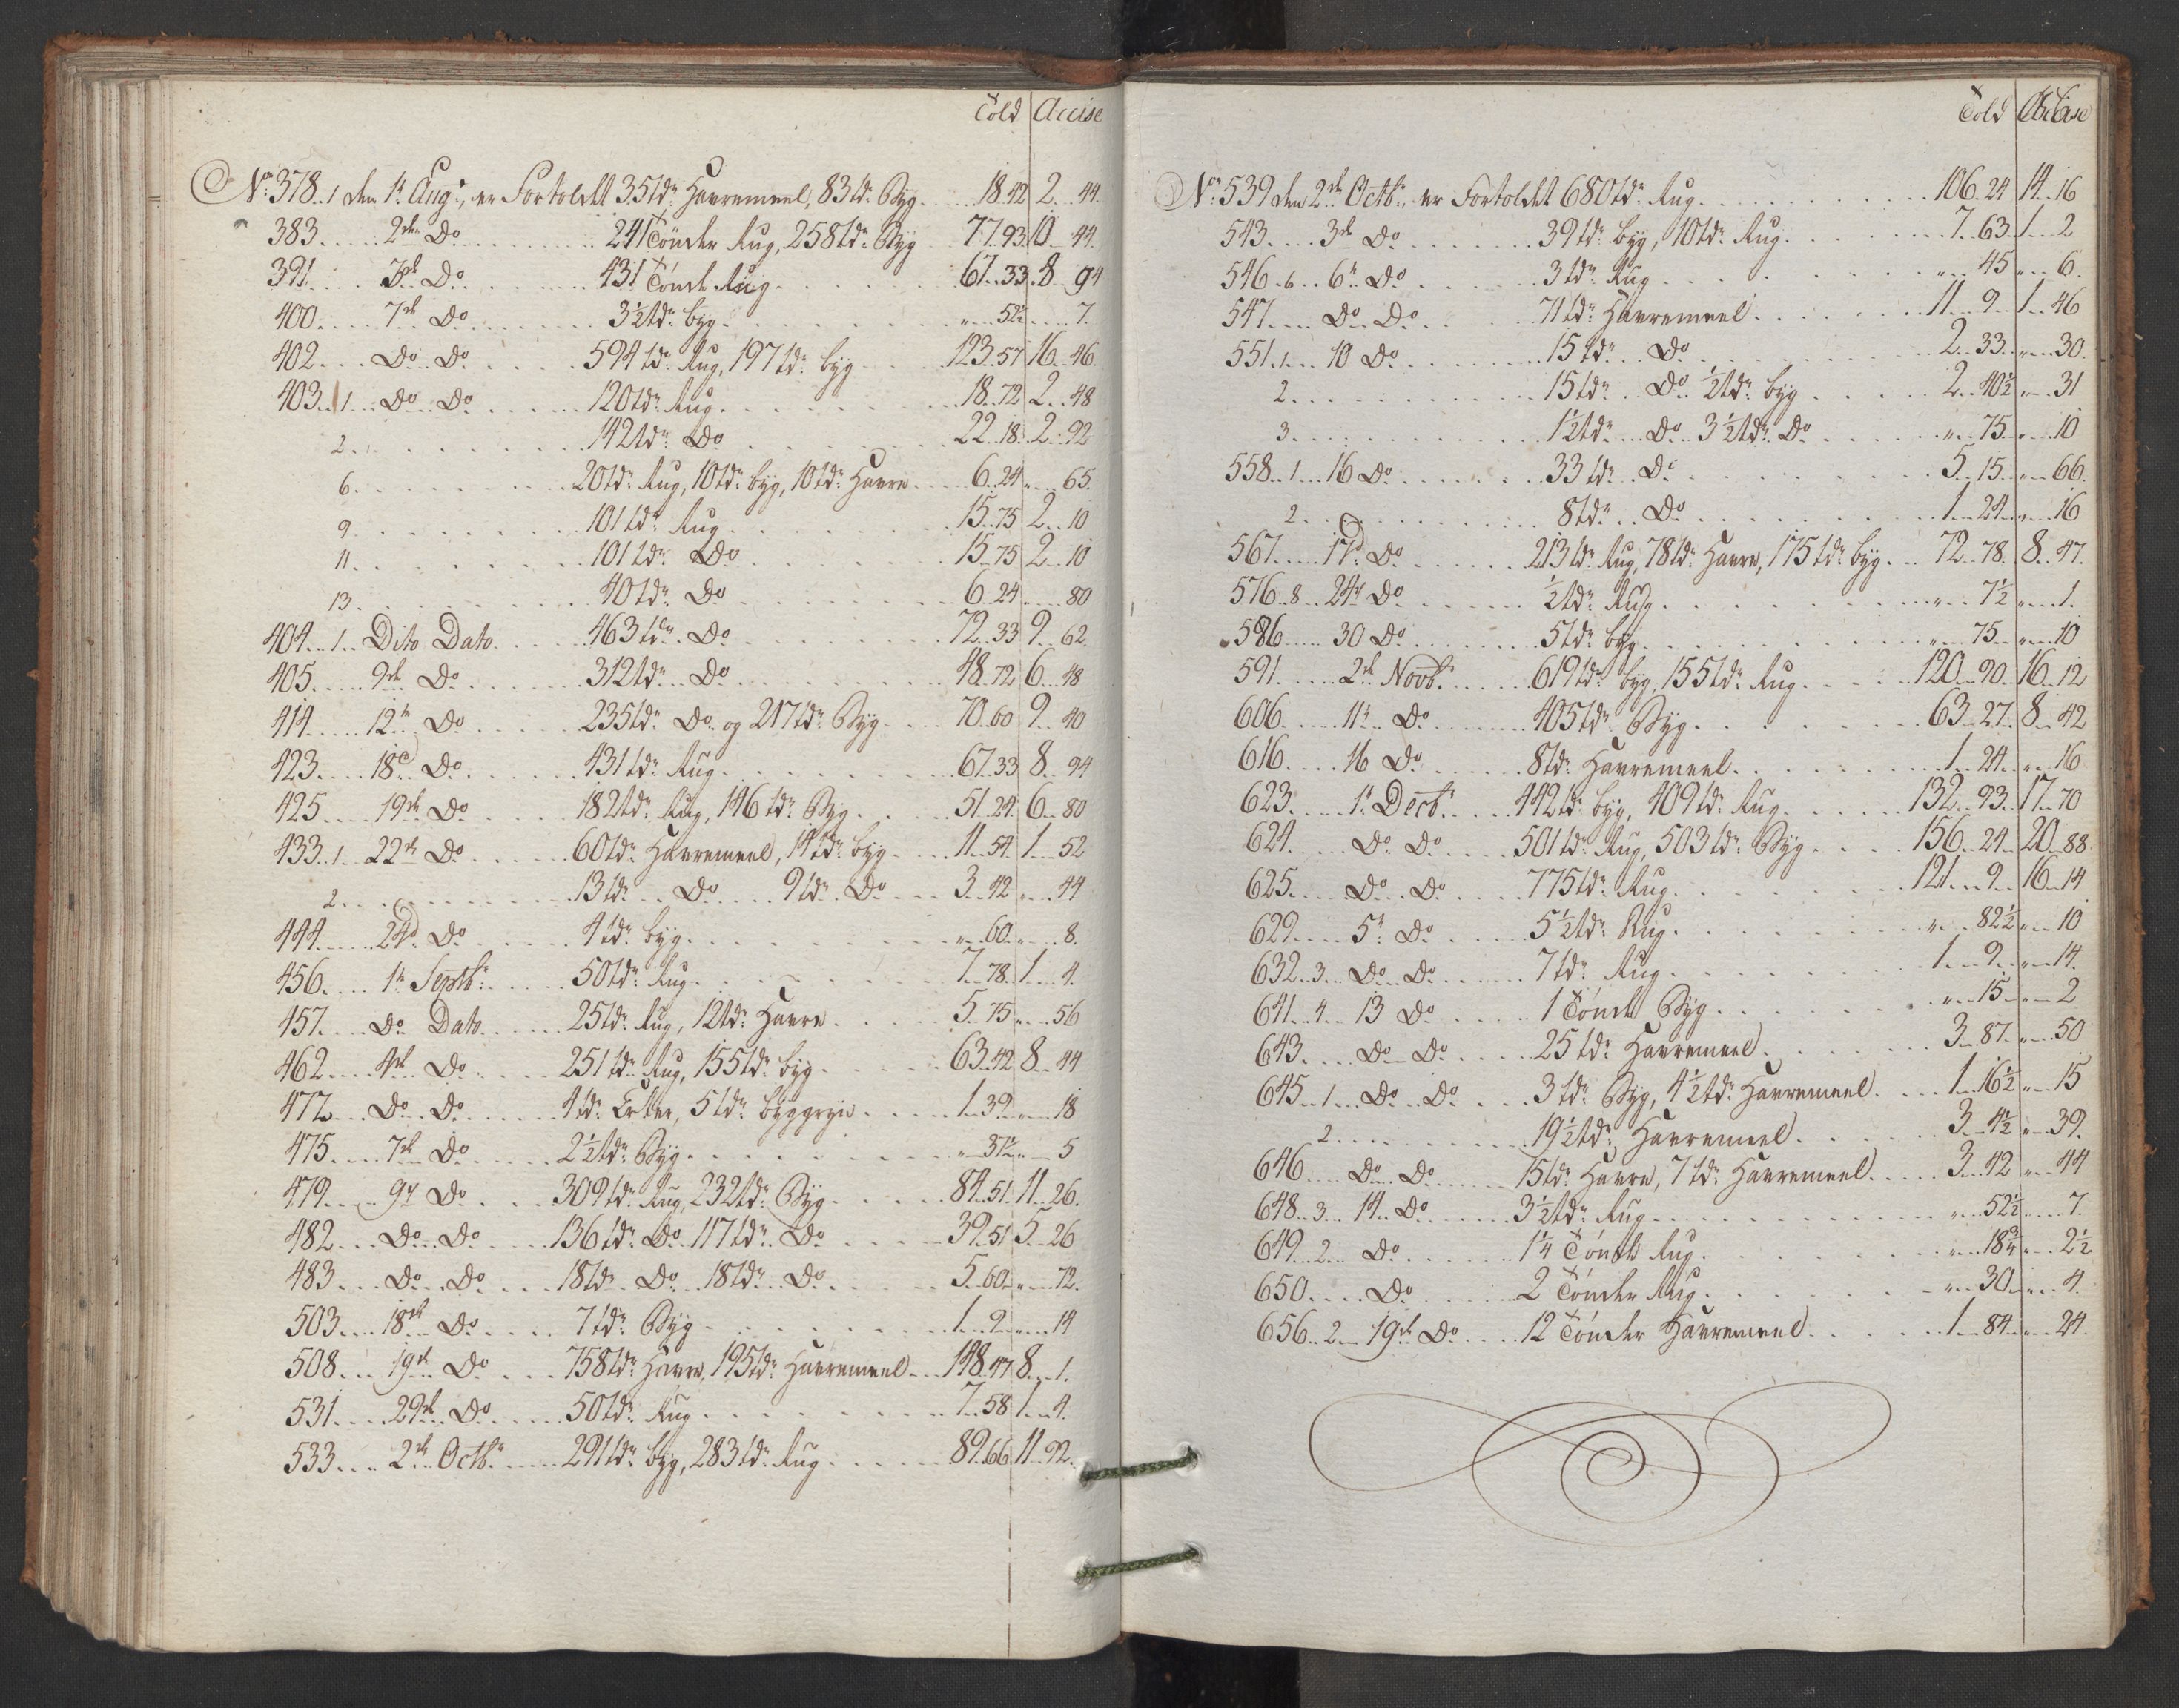 Told Accise
No: 378..1 den 1te Augt, er Fortoldet 35 tdr Havremeel, 83 tdr Byg 18 42 2 44
383 2den Do 241 Tönder Rug, 258 tdr Byg 77 93 10 44
391 3de Do 431 Tönde Rug 67 33 8 94
400 7de Do 3½ tdr byg " 52½ 7
402 Do Do 594 tdr Rug, 197 tdr byg 123 57 16 46
403 1 Do Do 120 tdr Rug 18 72 2 48
2 142 tdr Do 22 18 2 92
6 20 tdr Rug, 10 tdr byg, 10 tdr Havre 6 24 " 65
9 101 tdr Rug 15 75 2 10
11 101 tdr Do 15 75 2 10
13 40 tdr Do 6 24 80
404 1 Dito Dato 463 tdr Do 72 33 9 62
405 9de Do 312 tdr Do 48 72 6 48
414 12te Do 235 tdr Do og 217 tdr Byg 70 60 9 40
423 18de Do 431 tdr Rug 67 33 8 94
425 19de Do 182 tdr Rug, 146 tdr Byg 51 24 6 80
433 1 22de Do 60 tdr Havremeel, 14 tdr byg 11 54 1 52
2 13 tdr Do 9 tdr Do 3 42 " 44
444 24d Do 4 tdr byg " 60 " 8
456 1te Septbr 50 tdr Rug 7 78 1 4
457 Do Dato 25 tdr Rug, 12 tdr Havre 5 75 " 56
462 4de Do 251 tdr Rug, 155 tdr byg 63 42 8 44
472 Do Do 4 tdr Erter, 5 tdr byggryn 1 39 " 18
475 7de Do 2½ tdr Byg " 37½ " 5
479 9de Do 309 tdr Rug, 232 tdr Byg 84 51 11 26
482 Do Do 136 tdr Do 117 tdr Do 39 51 5 26
483 Do Do 18 tdr Do 18 tdr Do 5 60 " 72
503 18de Do 7 tdr Byg 1 9 " 14
508 19de Do 758 tdr Havre, 195 tdr Havremeel 148 47 8 1
531 29de Do 50 tdr Rug 7 58 1 4
533 2de Octbr 291 tdr byg, 283 tdr Rug 89 66 11 92
Told Accise
No: 539 den 2den Octbr er Fortoldet 680 tdr Rug 106 24 14 16
543 3de Do 39 tdr byg, 10 tdr Rug 7 63 1 2
546 6 6te Do 3 tdr Rug " 45 " 6
547 Do Do 71 tdr Havremeel 11 9 1 46
551 1 10 Do 15 tdr Do 2 33 " 30
2 15 tdr Do ½ tdr byg 2 40½ " 31
3 1½ tdr Do 3½ tdr Do " 75 " 10
558 1 16 Do 33 tdr Do 5 15 " 66
2 8 tdr Do 1 24 " 16
567 17d Do 213 tdr Rug, 78 tdr Havre, 175 tdr byg 72 78 8 47
576 8 24de Do ½ tdr Rug " 7½ " 1
586 30 Do 5 tdr byg " 75 " 10
591 2de Novb. 619 tdr byg, 155 tdr Rug 120 90 16 12
606 11te Do 405 tdr Byg 63 27 8 42
616 16 Do 8 tdr Havremeel 1 24 " 16
623 1te Decb. 442 tdr byg, 409 tdr Rug 132 93 17 70
624 Do Do 501 tdr Rug, 503 tdr Byg 156 24 20 88
625 Do Do 775 tdr Rug 121 9 16 14
629 5te Do 5½ tdr Rug " 82½ " 10
632 3 Do Do 7 tdr Rug 1 9 " 14
641 4 13 Do 1 Tönde Byg " 15 " 2
643 Do Do 25 tdr Havremeel 3 87 " 50
645 1 Do Do 3 tdr Byg, 4½ tdr Havremeel 1 16½ " 15
2 19½ tdr Havremeel 3 4½ " 39
646 Do Do 15 tdr Havre, 7 tdr Havremeel 3 42 " 44
648 3 14 Do 3½ tdr Rug " 52½ 7
649 2 Do 1¼ Tönde Rug " 18¾ " 2½
650 Do 2 Tönder Rug " 30 " 4
656 2 19de Do 12 Tönder Havremeel 1 84 " 24